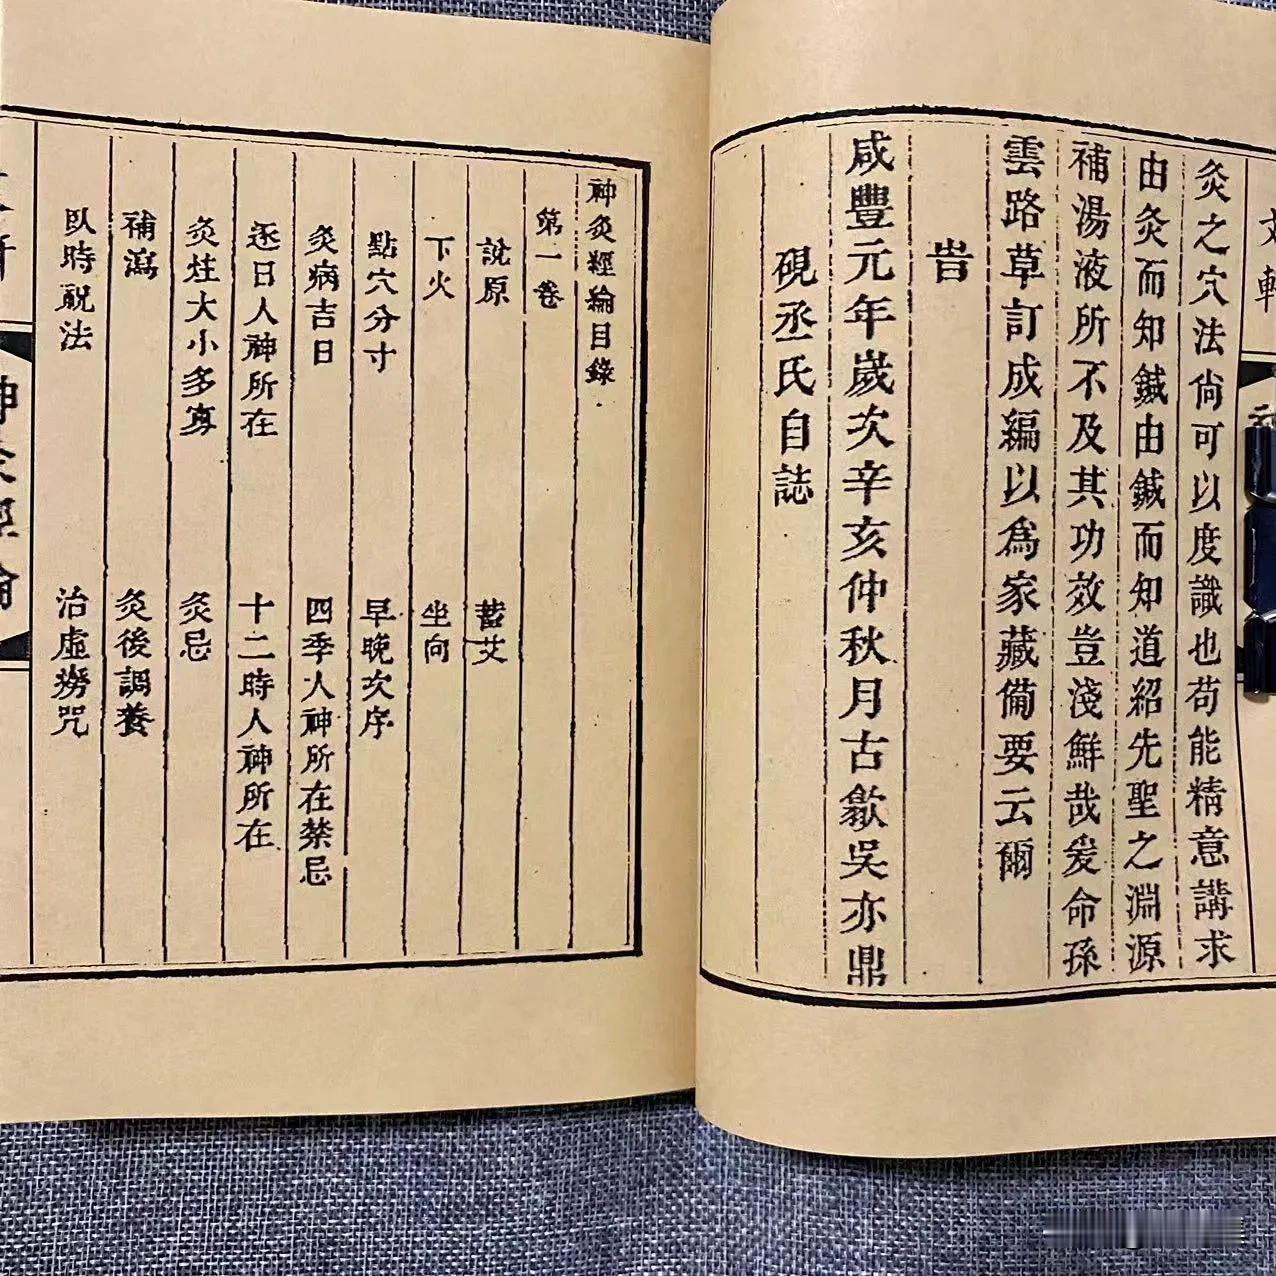 文軒
灸之穴法尙可以度識也苟能精意講求
由灸而知鍼由鍼而知道紹先聖之淵源
補湯液所不及其功效豈淺鮮哉爰命孫
雲路草訂成編以爲家藏備要云爾
旹
咸豐元年歲次辛亥仲秋月古歙吳亦鼎
硯丞氏自誌
神灸經綸目錄
第一卷
說原 蓄艾
下火 坐向
點穴分寸 早晚次序
灸病吉日 四季人神所在禁忌
逐日人神所在 十二時人神所在
灸炷大小多寡 灸忌
補瀉 灸後調養
臥時祝法 治虛癆咒
神灸經綸